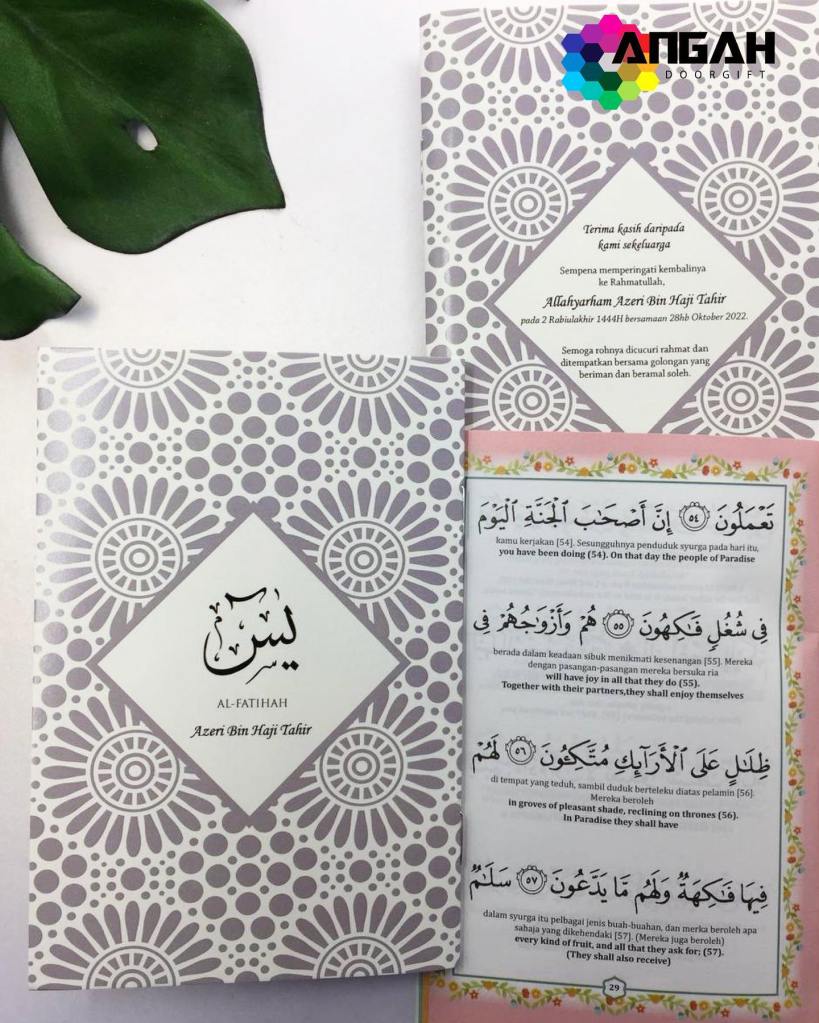 ANGAH
DOORGIFT
Terima kasih daripada
kami sekeluarga
Sempena memperingati kembalinya
ke Rahmatullah,
Allahyarham Azeri Bin Haji Tahir
pada 2 Rabiulakhir 1444H bersamaan 28hb Oktober 2022.
Semoga rohnya dicucuri rahmat dan
ditempatkan bersama golongan yang
beriman dan beramal soleh.
يس
AL-FATIHAH
Azeri Bin Haji Tahir
تَعْمَلُونَ ٥٤ إِنَّ أَصْحَٰبَ ٱلْجَنَّةِ ٱلْيَوْمَ
kamu kerjakan [54]. Sesungguhnya penduduk syurga pada hari itu,
you have been doing (54). On that day the people of Paradise
فِى شُغُلٍ فَٰكِهُونَ ٥٥ هُمْ وَأَزْوَٰجُهُمْ فِى
berada dalam keadaan sibuk menikmati kesenangan [55]. Mereka
dengan pasangan-pasangan mereka bersuka ria
will have joy in all that they do (55).
Together with their partners,they shall enjoy themselves
ظِلَٰلٍ عَلَى ٱلْأَرَآئِكِ مُتَّكِـُٔونَ ٥٦ لَهُمْ
di tempat yang teduh, sambil duduk berteleku diatas pelamin [56].
Mereka beroleh
in groves of pleasant shade, reclining on thrones (56).
In Paradise they shall have
فِيهَا فَٰكِهَةٌ وَلَهُم مَّا يَدَّعُونَ ٥٧ سَلَٰمٌ
dalam syurga itu pelbagai jenis buah-buahan, dan merka beroleh apa
sahaja yang dikehendaki [57]. (Mereka juga beroleh)
every kind of fruit, and all that they ask for; (57).
(They shall also receive)
29